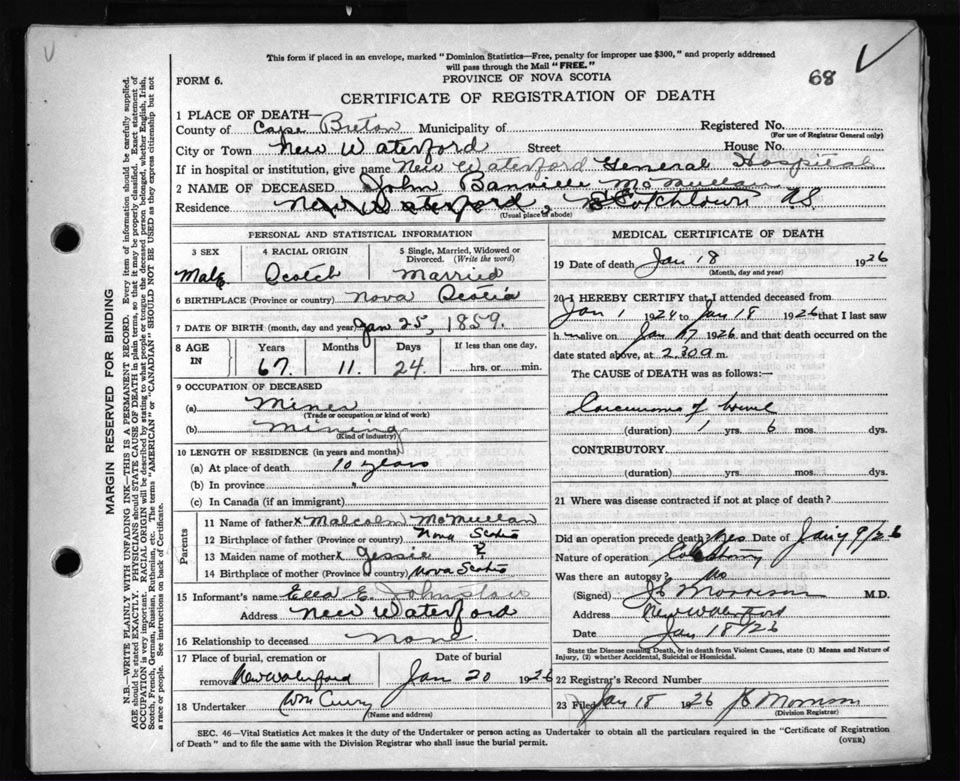 This form if placed in an envelope, marked "Dominion Statistics—Free, penalty for improper use $300," and properly addressed
will pass through the Mail "FREE."
FORM 6.
PROVINCE OF NOVA SCOTIA
68
CERTIFICATE OF REGISTRATION OF DEATH
1 PLACE OF DEATH—
County of Cape Breton Municipality of Registered No.
(For use of Registrar General only)
City or Town New Waterford Street House No.
If in hospital or institution, give name New Waterford General Hospital
2 NAME OF DECEASED John Banville McMullan
Residence New Waterford, Scotchtown N.S.
(Usual place of abode)
PERSONAL AND STATISTICAL INFORMATION
3 SEX Male
4 RACIAL ORIGIN Scotch
5 Single, Married, Widowed or Divorced. (Write the word) Married
6 BIRTHPLACE (Province or country) Nova Scotia
7 DATE OF BIRTH (month, day and year) Jan 25, 1859.
8 AGE IN Years Months Days If less than one day,
67. 11. 24. hrs. or min.
9 OCCUPATION OF DECEASED
(a) Miner
(Trade or occupation or kind of work)
(b) Mining
(Kind of industry)
10 LENGTH OF RESIDENCE (in years and months)
(a) At place of death 10 years
(b) In province "
(c) In Canada (if an immigrant)
Parents
11 Name of father x Malcolm McMullan
12 Birthplace of father (Province or country) Nova Scotia
13 Maiden name of mother x Jessie ?
14 Birthplace of mother (Province or country) Nova Scotia
15 Informant's name Ella E. Johnstone
Address New Waterford
16 Relationship to deceased None
17 Place of burial, cremation or Date of burial
removal New Waterford Jan 20 1926
18 Undertaker Wm Curry
(Name and address)
MEDICAL CERTIFICATE OF DEATH
19 Date of death Jan 18 1926
(Month, day and year)
20 I HEREBY CERTIFY that I attended deceased from
Jan 1 1924 to Jan 18 1926 that I last saw
h alive on Jan 17 1926 and that death occurred on
date stated above, at 2.30 a m.
The CAUSE of DEATH was as follows:—
Carcinoma of bowel
(duration) 1 yrs. 6 mos. dys.
CONTRIBUTORY.
(duration) yrs. mos. dys.
21 Where was disease contracted if not at place of death?
Did an operation precede death? Yes Date of Jany 9/26
Nature of operation Colostomy
Was there an autopsy? No
(Signed) Morrison M.D.
Address New Waterford
Date Jan 18/26
State the Disease causing Death, or in death from Violent Causes, state (1) Means and Nature of
Injury, (2) whether Accidental, Suicidal or Homicidal.
22 Registrar's Record Number
23 Filed Jan 18 1926 Morrison
(Division Registrar)
SEC. 46—Vital Statistics Act makes it the duty of the Undertaker or person acting as Undertaker to obtain all the particulars required in the "Certificate of Registration
of Death" and to file the same with the Division Registrar who shall issue the burial permit.
(OVER)
MARGIN RESERVED FOR BINDING
N.B.—WRITE PLAINLY WITH UNFADING INK—THIS IS A PERMANENT RECORD. Every item of information should be carefully supplied.
AGE should be stated EXACTLY. PHYSICIANS should STATE CAUSE OF DEATH in plain terms, so that it may be properly classified. Exact statement of
OCCUPATION is very important. RACIAL ORIGIN will be described by stating to what people or tongue the deceased person belonged, whether English, Irish,
Scotch, French, German, Russian, Ruthenian, etc. The terms "AMERICAN" or "CANADIAN" SHOULD NOT BE USED as they express citizenship but not
a race or people. See instructions on back of Certificate.